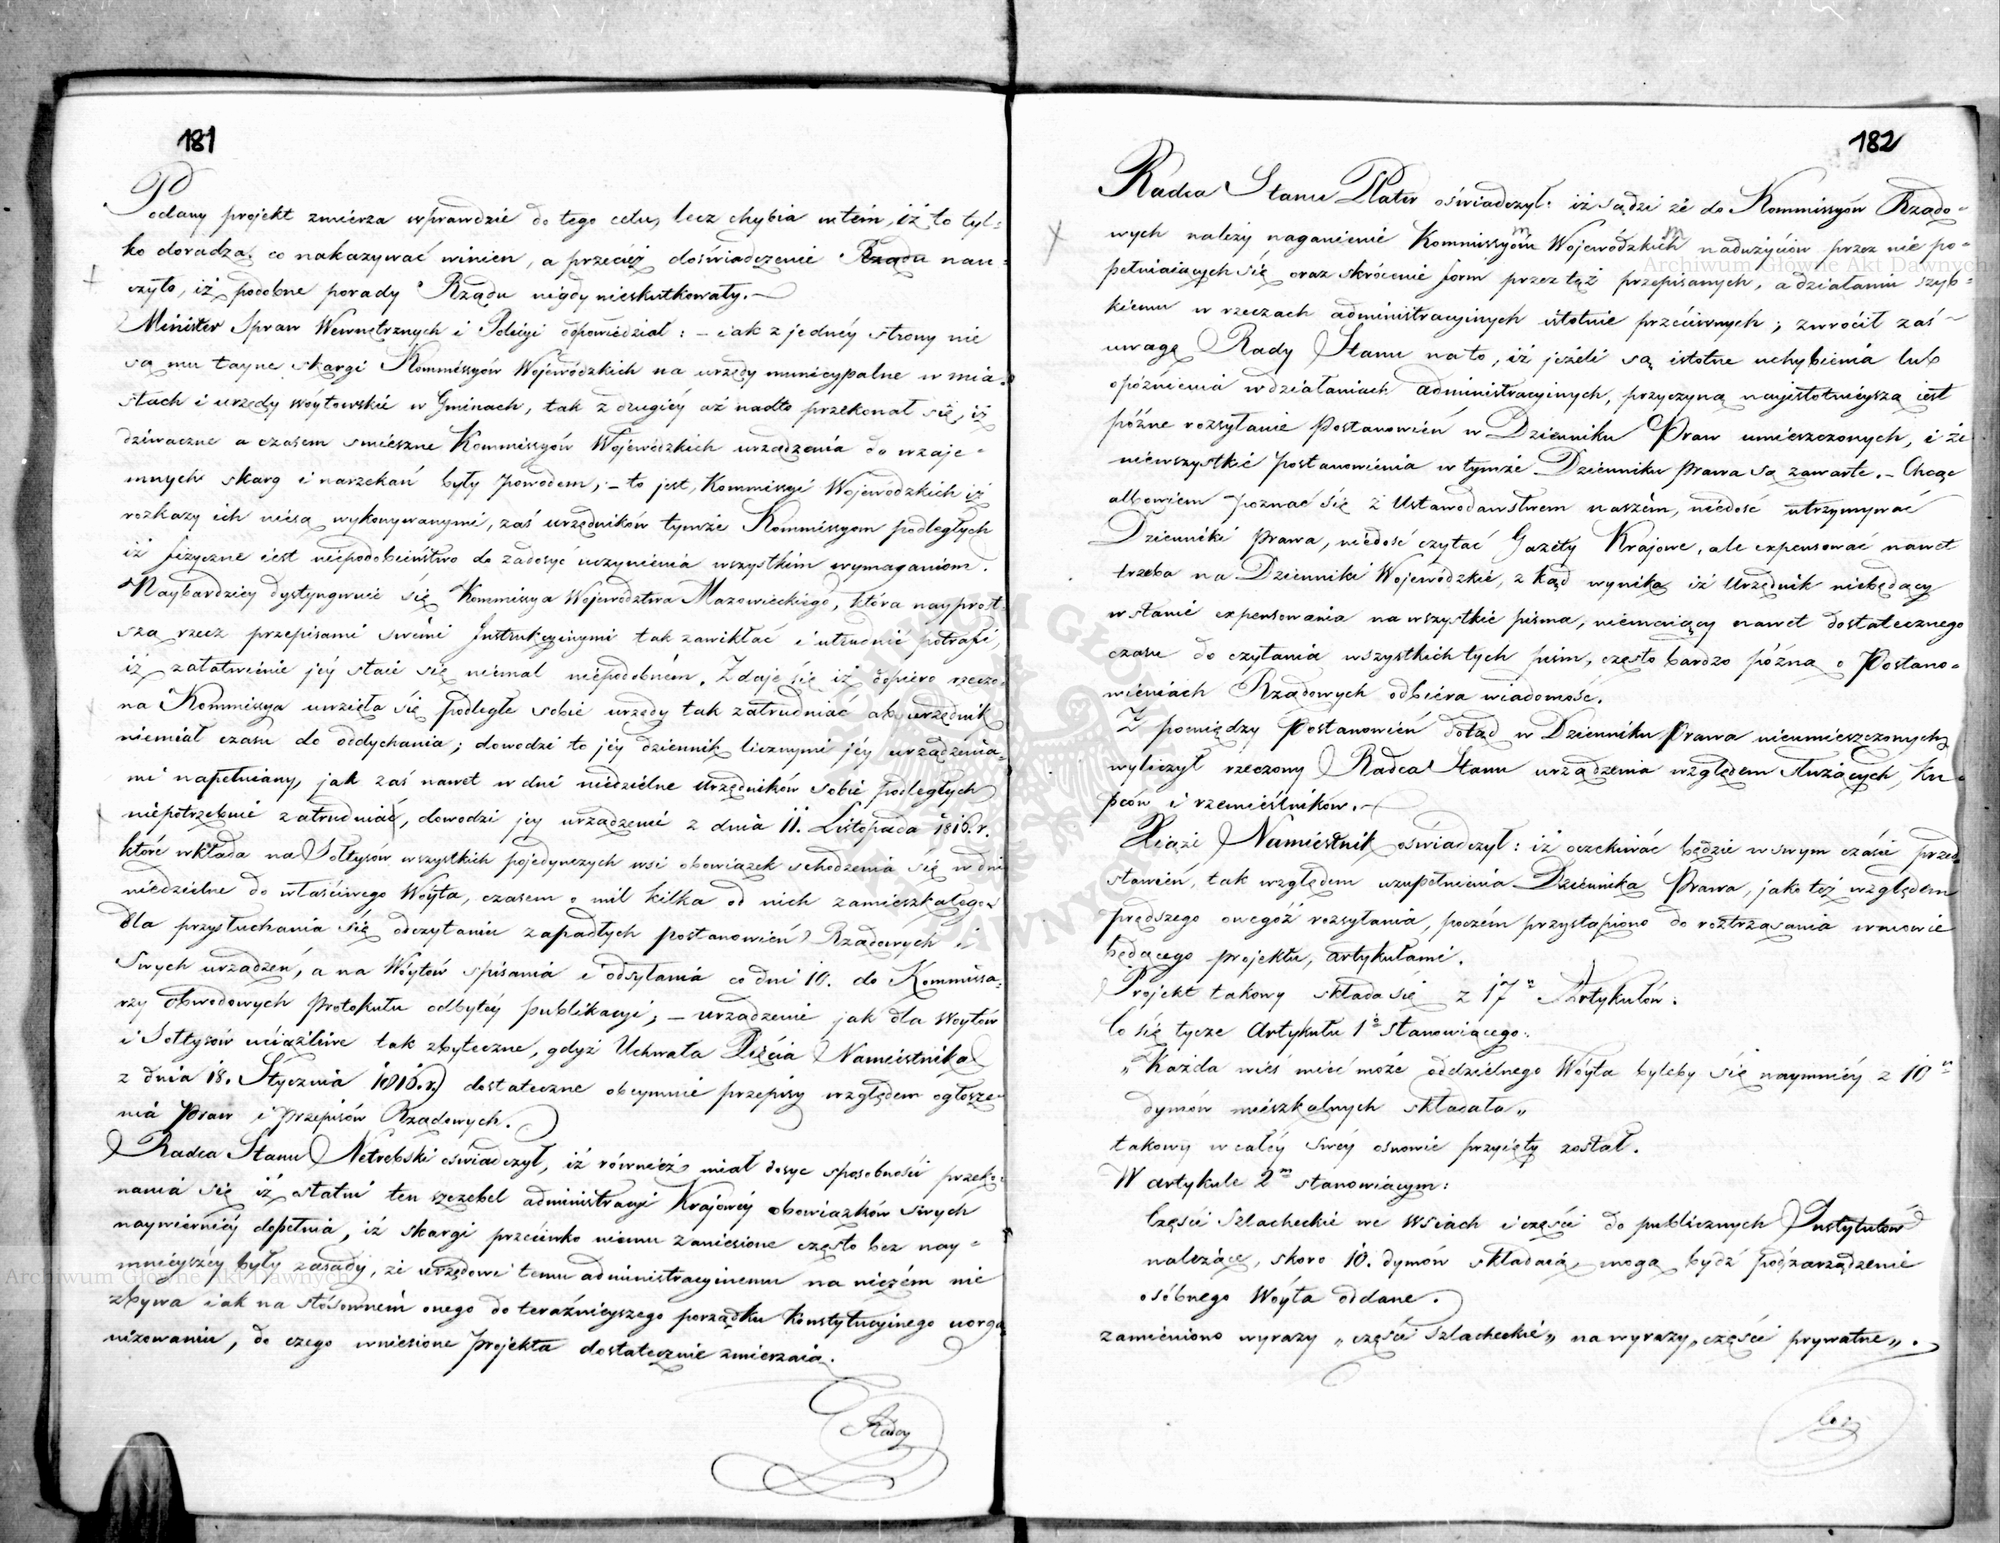 181
Podany projekt zmierza wprawdzie do tego celu, lecz chybia w tém, iż to tyl-
ko doradza, co nakazywać winien, a przecież doświadczenie Rządu nau-
czyło, iż podobne porady Rządu nigdy nieskutkowały. —
Minister Spraw Wewnętrznych i Policyi odpowiedział: — iak z jednéy strony nie
są mu tayne skargi Kommissyów Wojewódzkich na urzędy municypalne w mia-
stach i urzędy woytowskie w Gminach, tak z drugiéy aż nadto przekonał się, iż
dziwaczne a czasem smieszne Kommissyów Woiewódzkich urządzenia do wzaje-
mnych skarg i narzekań były powodem; — to jest, Kommissyi Wojewódzkich iż
rozkazy ich niesą wykonywanymi, zaś urzędników tymże Kommissyom podległych
iż fizyczne iest niepodobieństwo do zadosyć uczynienia wszystkim wymaganiom.
Naybardziéy dystyngwuie się Kommissya Województwa Mazowieckiego, która nayprost-
szą rzecz przepisami swémi Instrukcyinymi tak zawikłać i utrudnić potrafi,
iż załatwienie jéy staie się niemal niepodobném. Zdaje się iż dopiero rzeczo-
na Kommissya uwzięła się podległe sobie urzędy tak zatrudniać ab urzędnik
niemiał czasu do oddychania; dowodzi to jéy dziennik licznymi jéy urządzenia-
mi napełniany, jak zaś nawet w dni niedzielne Urzędników sobie podległych
niepotrzebnie zatrudniać, dowodzi jey urządzenie z dnia 11. Listopada 1816.r.
które wkłada na Sołtysów wszystkich pojedynczych wsi obowiązek schodzenia się w dni
niedzielne do właściwego Woyta, czasem o mil kilka od nich zamieszkałego
dla przysłuchania się odczytaniu zapadłych postanowień Rządowych i
Swych urządzeń, a na Woytów spisania i odsyłania co dni 10. do Kommissa-
rzy Obwodowych Protokułu odbytéy publikacyi; — urządzenie jak dla Woytów
i Sołtysów uciążliwe tak zbyteczne, gdyż Uchwała Xięcia Namiestnika
z dnia 18. Stycznia 1816.r. dostateczne obeymuie przepisy względem ogłosze-
nia Praw i Przepisów Rządowych.
Radca Stanu Netrebski oświadczył, iż równiéż miał dosyc sposobności przeko-
nania się iż ostatni ten szczebel administracyi Krajowéy obowiązków swych
naywiérniéy dopełnia, iż skargi przeciwko niemu zaniesione często bez nay-
mnieyszéy były zasady, że urzędowi temu administracyinemu na niczém nie
zbywa iak na stósowném onego do teraźnieyszego porządku Konstytucyinego uorga-
nizowaniu, do czego wniesione Projekta dostatecznie zmierzaią.
Radca
182
Radca Stanu Plater oświadczył: iż sądzi że do Kommissyów Rządo-
wych należy naganienie Kommissyóm Woiewódzkim nadużyciów przez nie po-
pełniaiących się oraz skrócenie form przez też przepisanych, a działaniu szyb-
kiemu w rzeczach administracyinych istotnie przéciwnych; zwrócił zaś
uwagę Rady Stanu na to, iż jeżeli są istotne uchybienia lub
opóźnienia w działaniach administracyinych, przyczyną nayistotnieyszą iest
późne rozsyłanie Postanowień w Dzienniku Praw umieszczonych, i że
niewszystkie postanowienia w tymże Dzienniku Prawa są zawarte. — Chcąc
albowiem poznać się z Ustawodawstwem naszém, niedość utrzymywać
Dzienniki Prawa, niedość czytać Gazéty Krajowe, ale expensować nawet
trzeba na Dzienniki Woiewódzkie, z kąd wynika iż Urzędnik niebędący
w stanie expensowania na wszystkie pisma, niemaiący nawet dostatecznego
czasu do czytania wszystkich tych pism, często bardzo późną o Postano-
wieniach Rządowych odbiéra wiadomość.
Z pomiędzy Postanowień dotąd w Dzienniku Prawa nieumieszczonych
wyliczył rzeczony Radca Stanu urządzenia względem służących, ku-
pców i rzemieślników. —
Xiąże Namiestnik oświadczył: iż oczekiwać będzie w swym czasie przed-
stawień, tak względem uzupełnienia Dziennika Prawa, jako też względem
prędszego onegóż rozsyłania, poczém przystąpiono do roztrząsania w mowie
będącego projektu, artykułami.
Projekt takowy składa się z 17u Artykułów.
Co się tycze Artykułu 1o stanowiącego:
„Każda wieś mieć może oddzielnego Woyta byleby się naymniéy z 10u
dymów mieszkalnych składała„
takowy w całéy swéy osnowie przyięty został.
W artykule 2m stanowiącym:
Części Szlacheckie we Wsiach i części do publicznych Instytutów
należące, skoro 10. dymów składaią, mogą bydź pod zarządzenie
osóbnego Woyta oddane.
zamieniono wyrazy „części Szlacheckie„ na wyrazy „części prywatne„.